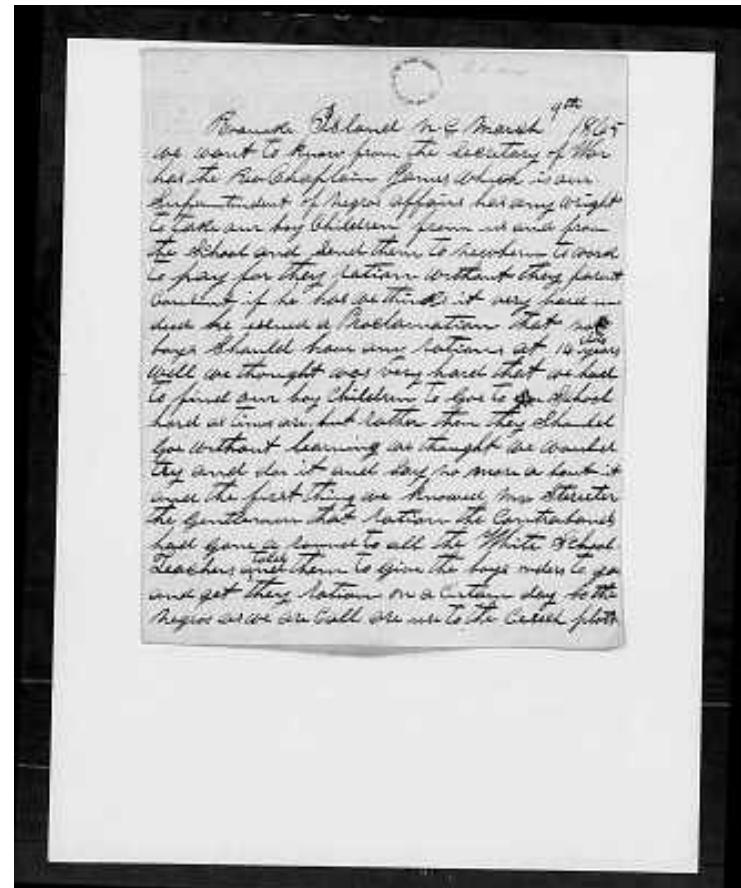 Roanoke Island N C March 9th 1865
we want to know from the Secretary of War
has the Rev Chaplain James which is our
Superintendent of negros affairs has any wright
to take our boy Children from us and from
the School and Send them to newbern to work
to pay for they ration without they parent
Consent if he has we thinks it very hard in
deed he essued a Proclamation that no
boys Should have any rations at 14 years
well we thought was very hard that we had
to find our boy Children to Goe to School
hard as times are but rather then they Should
Goe without learning we thought we would
try and doe it and say no more a bout it
and the first thing we knowed Mr Streeter
the Gentlemen that ration the Contrabands
had Gone a round to all the White School-
Teachers and told them to Give the boys orders to goe
and get they ration on a Cirtain day so the
negros as we are Call are use to the Cesesh plots